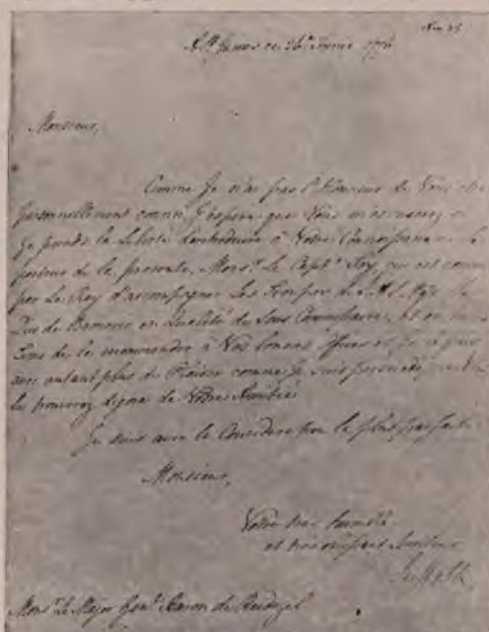 St. James ce 16e Fevrier 1776
Monsieur,
Comme Je n'ai pas l'Honneur de Vous être
personnellement connu, J'espère que Vous m'excuserez si
Je prends la Liberté d'introduire à Votre Connoissance le
porteur de la presente, Monsr. Le Capt. Foy, qui est
par Le Roy d'accompagner les Troupes de
Duc de Brunswic en Qualité de Sous Commissaire, et en
de le recommander à Vos bonnes offices et Je
avec autant plus de Plaisir comme Je suis persuadé que
le trouverez digne de Votre Amitié
Je suis avec la Consideration la plus parfaite
Monsieur,
Votre très humble
et très obeissant Serviteur
Suffolk
Monsr. Le Major Genl. Baron de Riedezel